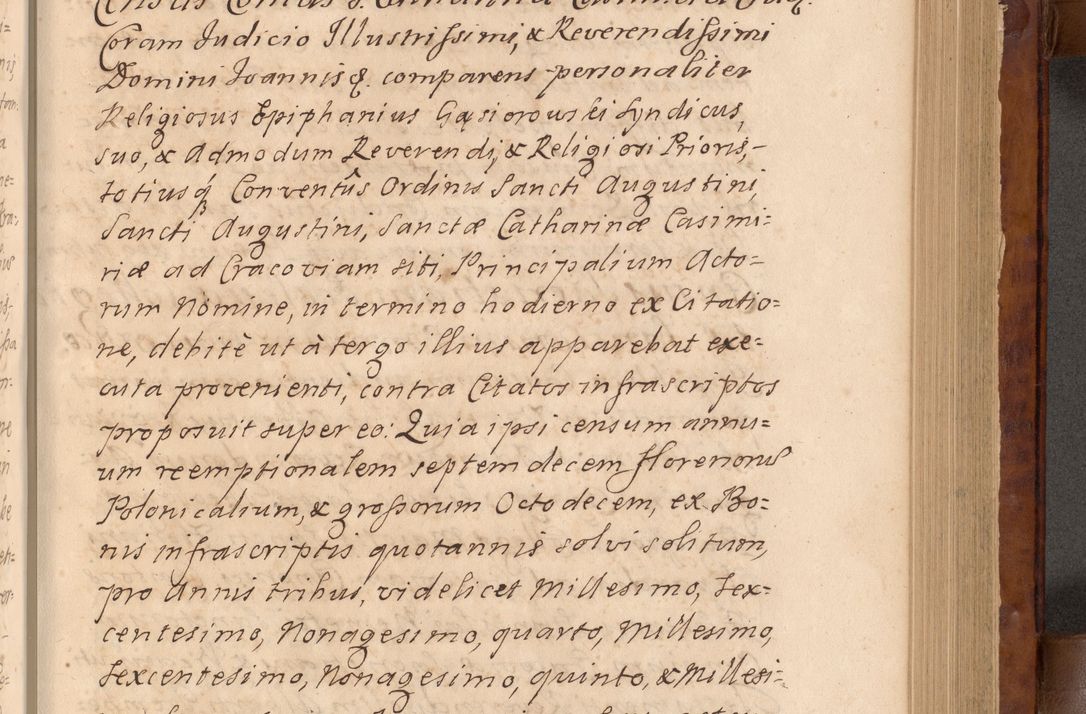 Coram Judicio Illustrissimi, & Reverendissimi
Domini Joannis &. comparens personaliter
Religiosus Epiphanius Gąsiorowski Syndicus,
suo, & Admodum Reverendi, & Religiosi Prioris,
totiusq́ Conventûs Ordinis Sancti Augustini
Sancti Augustini, Sanctæ Catharinæ Casimi=
riæ ad Cracoviam siti, Principalium Acto=
rum Nomine, in termino hodierno ex Citatio=
ne, debitè ut à tergo illius apparebat exe=
cuta provenienti, contra Citatos infrascriptos
proposuit super eo: Quia ipsi censum annu=
um reemptionalem septem decem florenorum
Polonicalium, & grossorum Octodecem, ex Bo=
nis infrascriptis quotannis solvi solitum,
pro Annis tribus, videlicet Millesimo, Sex=
centesimo, Nonagesimo, quarto, Millesimo,
Sexcentesimo, Nonagesimo, quinto, & Millesi=